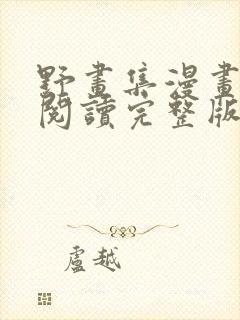 野畫集漫畫
閱讀完整版
盧越